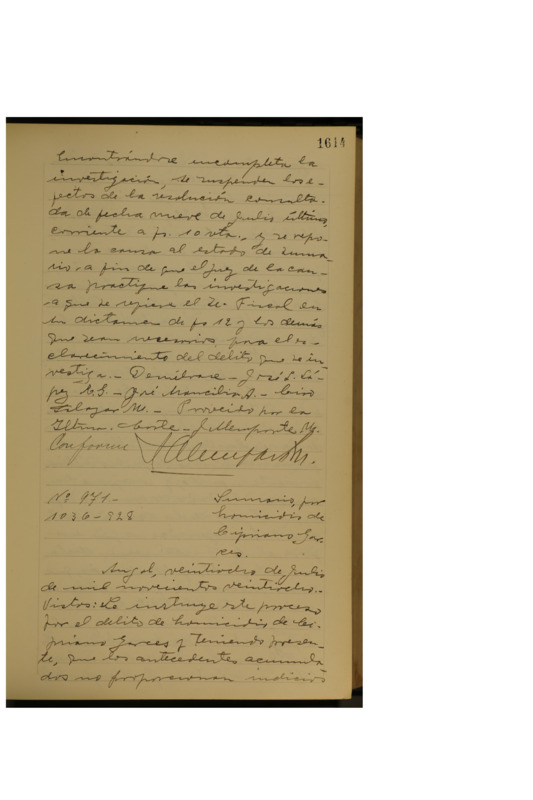 1614
Encontrándose incompleta la
investigación, se suspenden los e-
fectos de la resolución consulta-
da de fecha nueve de Julio último,
corriente a fs. 10 vta., y se repo-
ne la causa al estado de suma-
rio, a fin de que el juez de la cau-
sa practique las investigaciones
a que se refiere el Sr. Fiscal en
su dictamen de fs 12 y los demás
que sean necesarios para el es-
clarecimiento del delito que se in-
vestiga.- Devuélvase - José L. Ló-
pez E.G. - José Mancilla A. - Ciro
Salazar M. - Proveído por la
Iltma. Corte - J. Memporte M.
Conforme
Nº 971-
1036-928
Sumario, por
homicidio de
Cipriano Gar-
ces.
Angol, veintiocho de Julio
de mil novecientos veintiocho.-
Vistos: Se instruye este proceso
por el delito de homicidio de Ci-
priano Garces y teniendo presen-
te, que los antecedentes acumula-
dos no proporcionan indicios